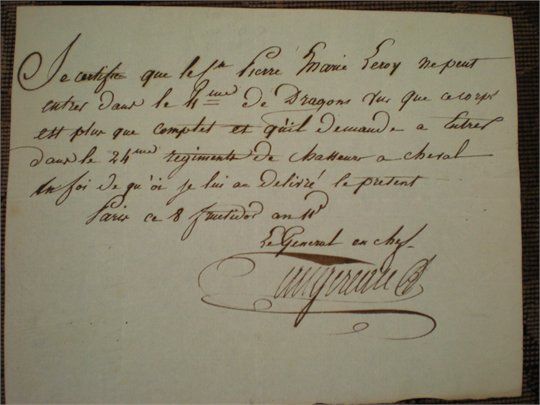 Je certifie que le Sr. Pierre Marie Leroy ne peut
entrer dans le 4eme de Dragons vus que ce corps
est plus que complet et qu'il demande a Entrer
dans le 24me regiments de chasseurs a cheval
en foi de qu'oi je lui ai delivré le present
Paris ce 8 fructidor an
Le General en chef
augereau